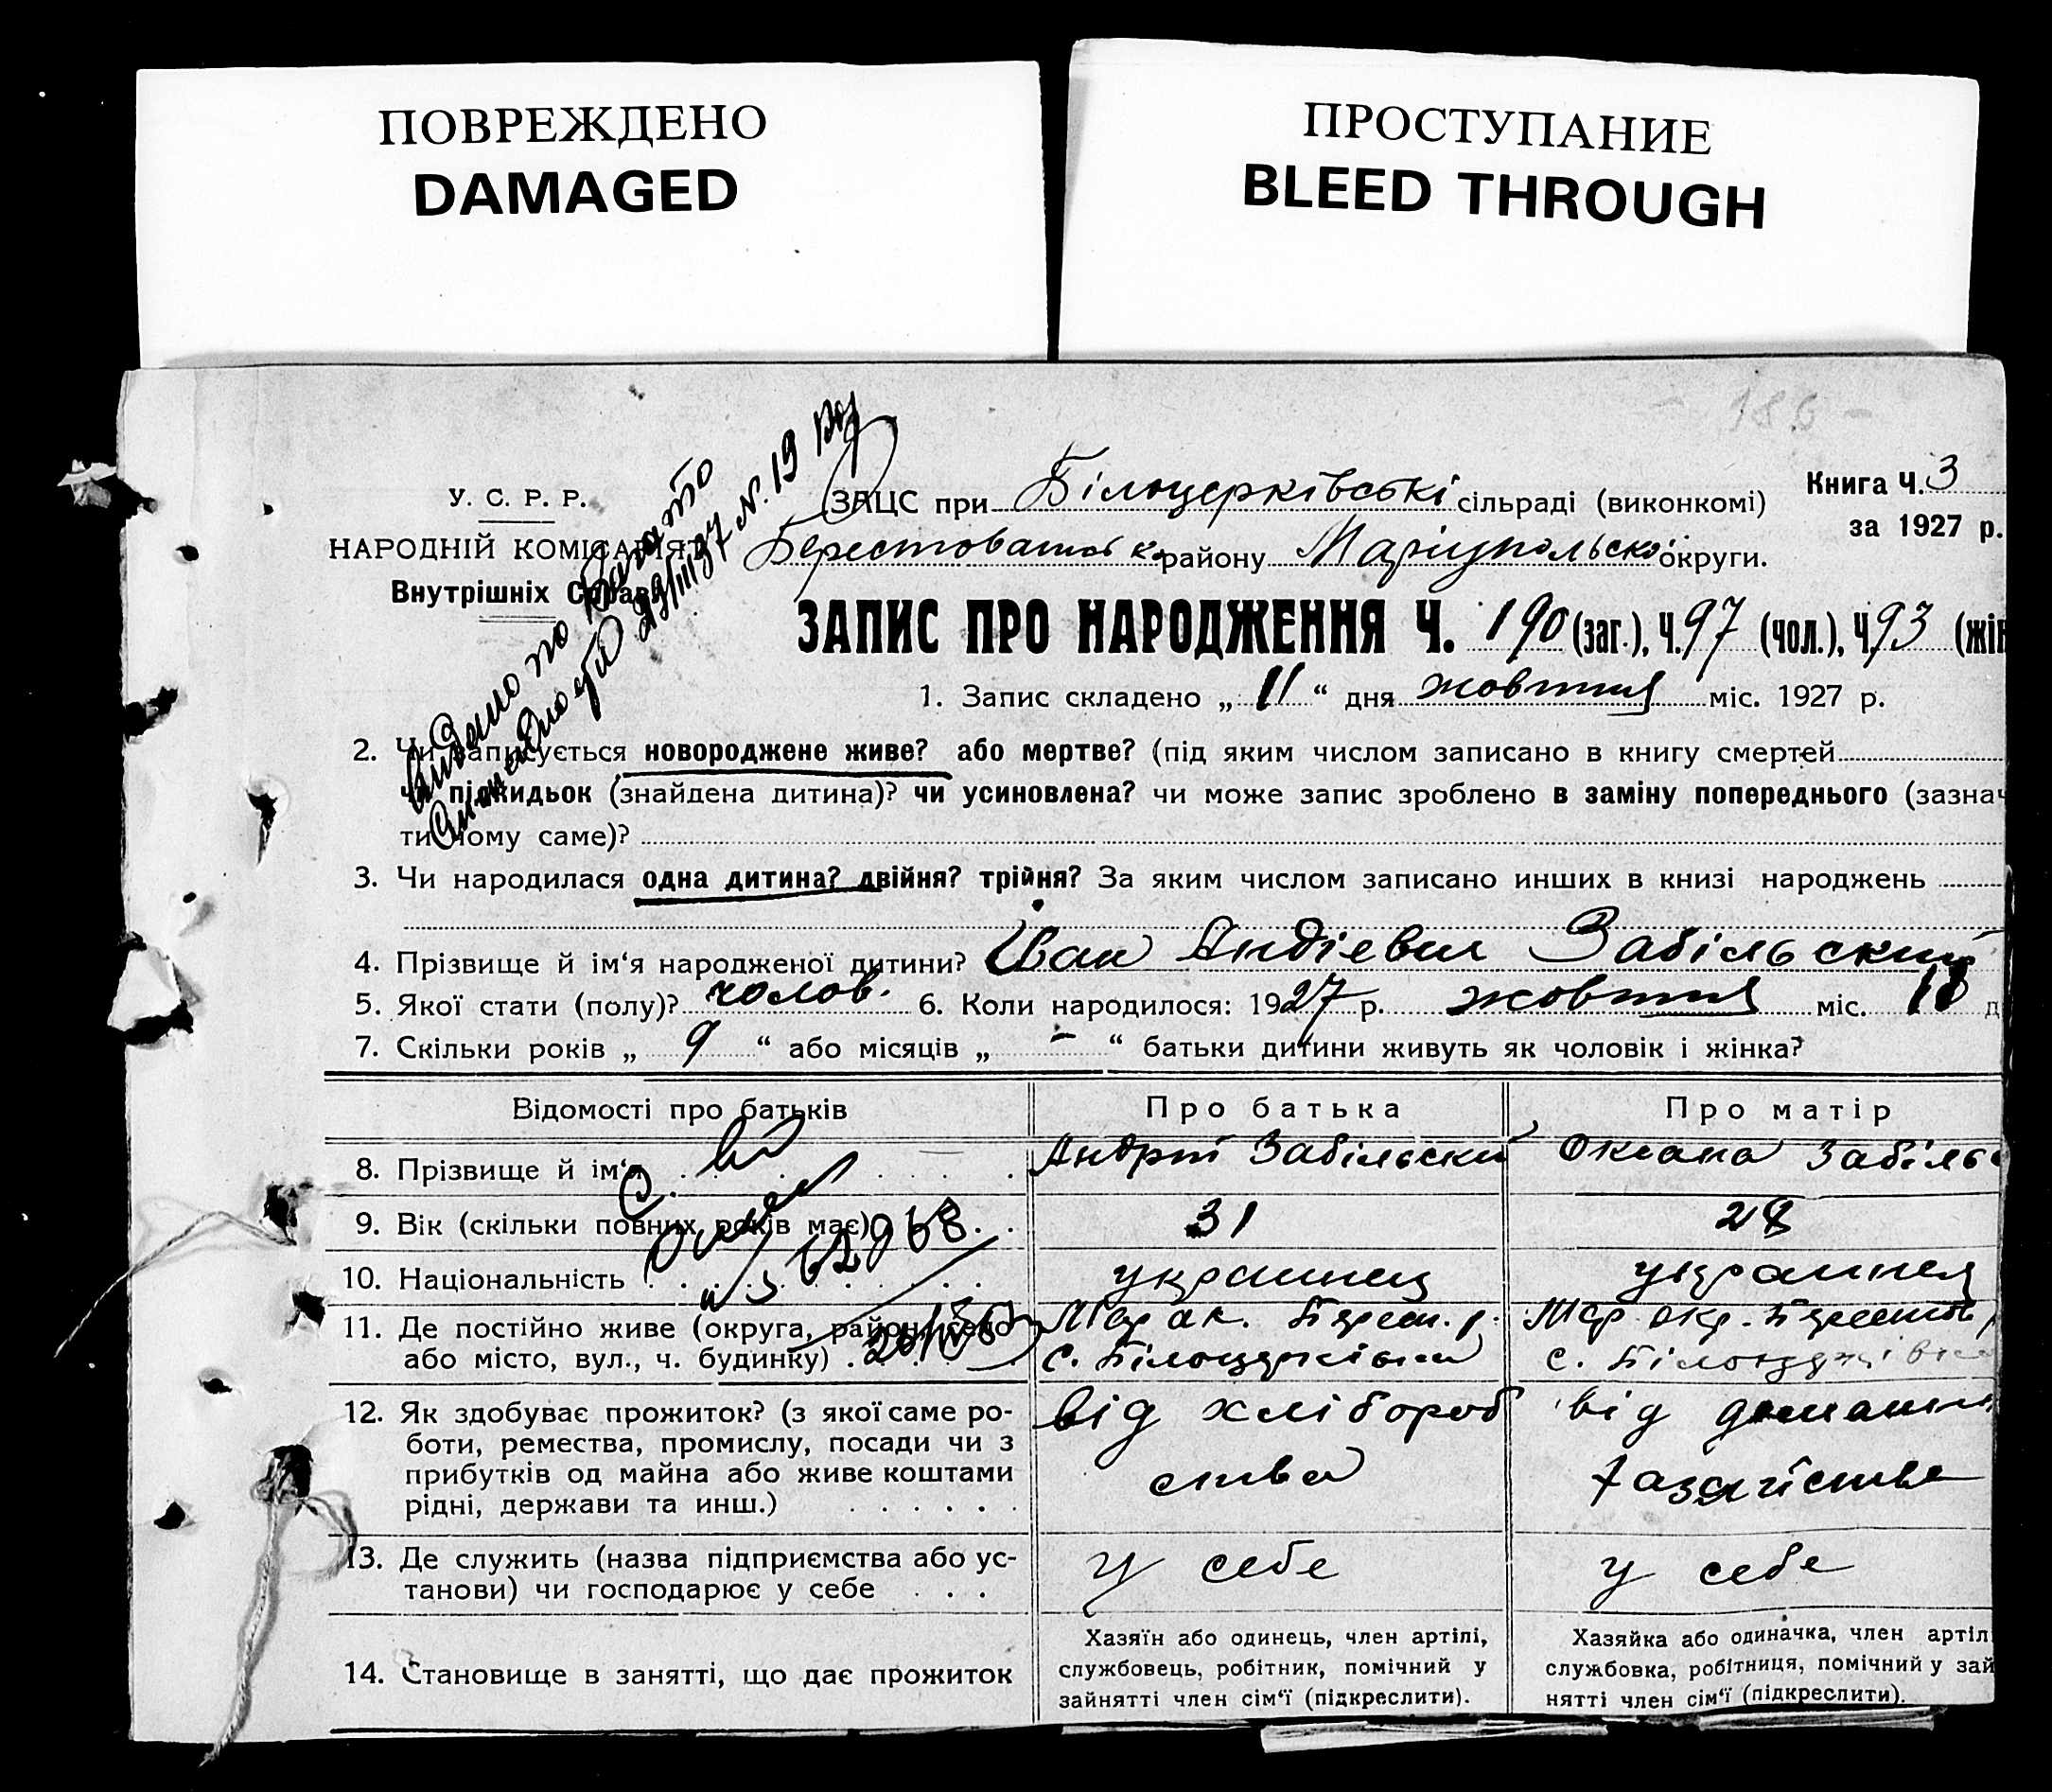 ПОВРЕЖДЕНО
DAMAGED
ПРОСТУПАНИЕ
BLEED THROUGH
186
У. С. Р. Р.
НАРОДНІЙ КОМІСАРІЯТ
Внутрішніх Справ
Видано по
23/III 37 N. 19
ЗАЦС при Білоцерківські сільраді (виконкомі)
Книга Ч. 3
за 1927 р.
району Маріупольської округи.
ЗАПИС ПРО НАРОДЖЕННЯ Ч. 190 (заг.), Ч. 97 (чол.), Ч. 93 (жін
1. Запис складено „ 11 “ дня жовтня міс. 1927 р.
2. Чи записується новороджене живе? або мертве? (під яким числом записано в книгу смертей
чи підкидьок (знайдена дитина)? чи усиновлена? чи може запис зроблено в заміну попереднього (зазнач
ти чому саме)?
3. Чи народилася одна дитина? двійня? трійня? За яким числом записано инших в книзі народжень
4. Прізвище й ім‘я народженої дитини? Іван Андієвич Забільский
5. Якої стати (полу)? чолов. 6. Коли народилося: 1927 р. жовтня міс. 10 д
7. Скільки років „ 9 “ або місяців „ - “ батьки дитини живуть як чоловік і жінка?
Відомості про батьків
Про батька
Про матір
8. Прізвище й ім‘я
Андрій Забільский
Оксана Забільс
9. Вік (скільки повних років має)
31
28
10. Національність
украинец
украинка
11. Де постійно живе (округа, район, село
або місто, вул., ч. будинку)
Мар ок. Берест. р.
с. Білоцерківка
Мар окр. Берестов
с. Білоцерківка
12. Як здобуває прожиток? (з якої саме ро-
боти, ремества, промислу, посади чи з
прибутків од майна або живе коштами
рідні, держави та инш.)
від хлібороб
ства
від домашн
хазяйства
13. Де служить (назва підприємства або ус-
танови) чи господарює у себе
у себе
у себе
14. Становище в занятті, що дає прожиток
Хазяїн або одинець, член артілі,
службовець, робітник, помічний у
зайнятті член сім‘ї (підкреслити).
Хазяйка або одиначка, член артіл
службовка, робітниця, помічний у зай
нятті член сім‘ї (підкреслити).